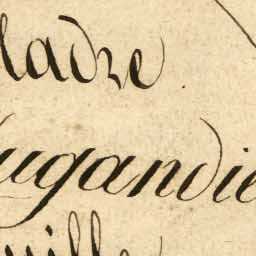 ladre
ugandie
uille